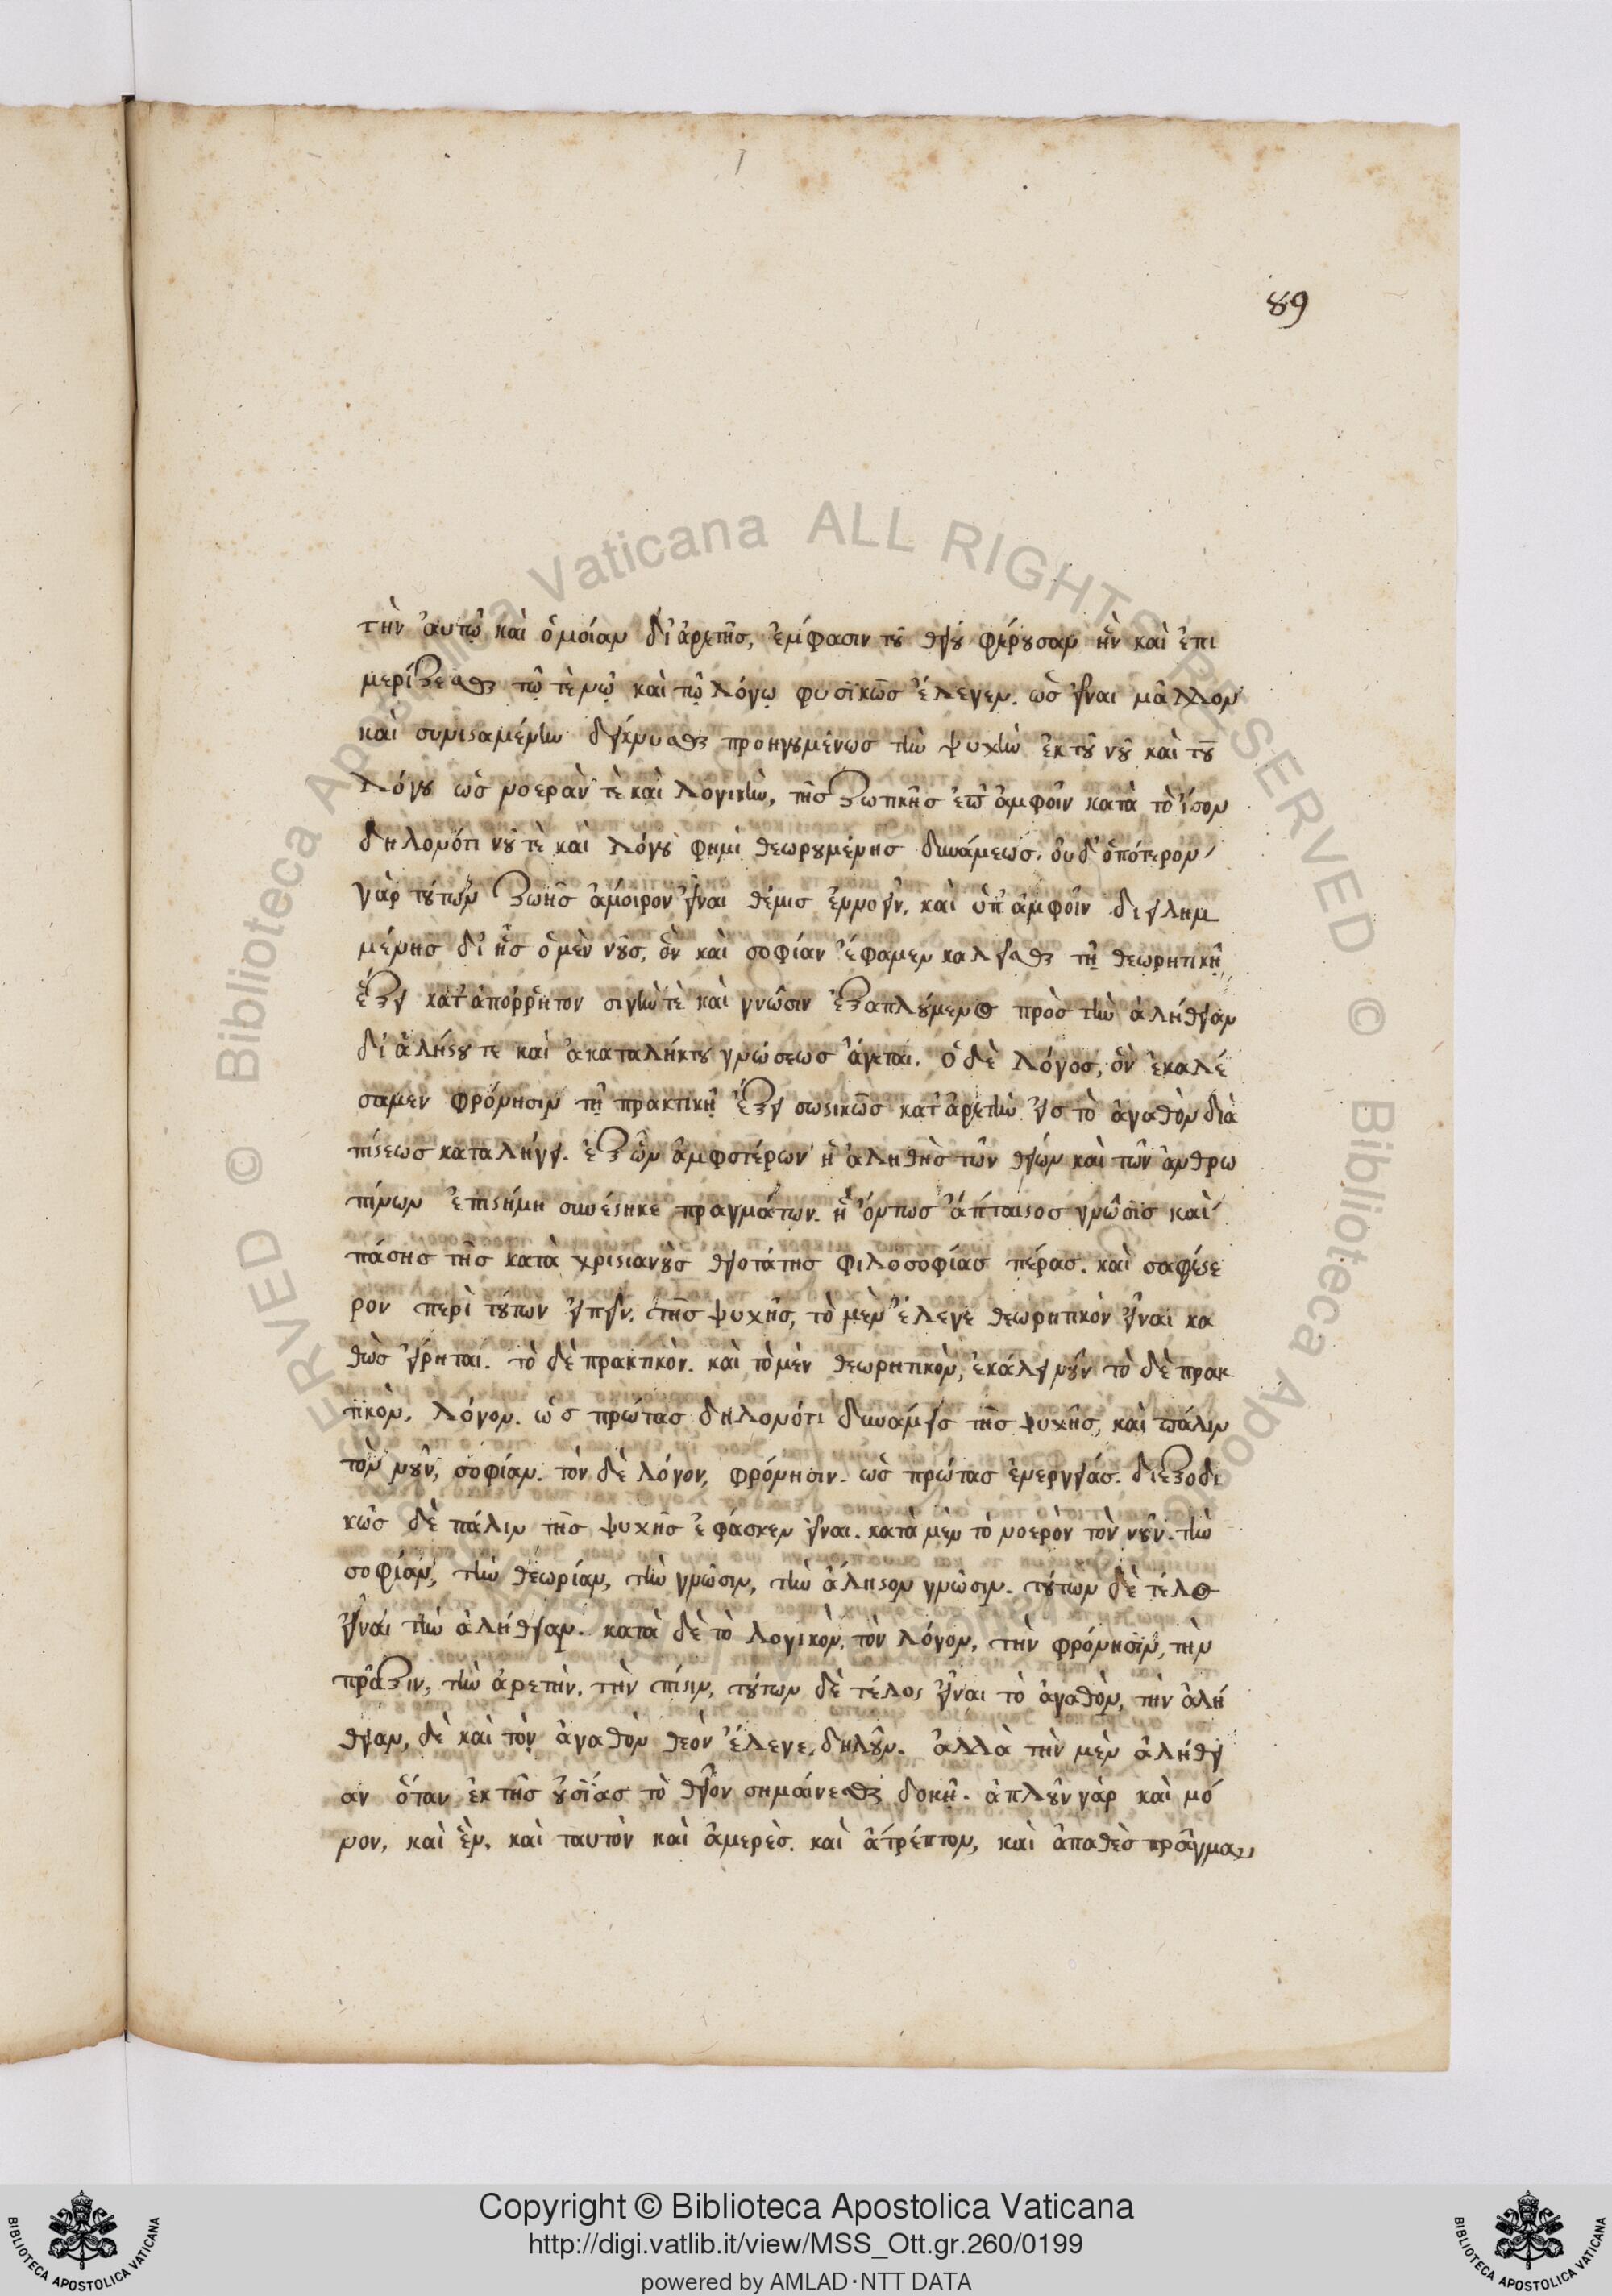 89
τὴν αὐτῷ καὶ ὁμοίαν δι' ἀρετῆς, ἔμφασιν τοῦ θείου φέρουσαν ἣν καὶ ἐπι
μερίζεσθαι τῷ τὲ νῷ καὶ τῷ λόγῳ φυσικῶς ἔλεγεν. ὡς εἶναι μᾶλλον
καὶ συνισαμένην δείκνυσθαι προηγουμένως τὴν ψυχὴν ἐκ τοῦ νοῦ καὶ τοῦ
λόγου ὡς νοερὰν τὲ καὶ λογικὴν, τῆς ζωτικῆς ἐπ' ἀμφοῖν κατὰ τὸ ἴσον
δηλονότι νοῦ τὲ καὶ λόγου φημὶ θεωρουμένης δυνάμεως. οὐδ' ὁπότερον
γὰρ τούτων ζωῆς ἄμοιρον εἶναι θέμις ἐννοεῖν, καὶ ὑπ' ἀμφοῖν διειλημ
μένης δι' ἧς ὁ μὲν νοῦς, ὃν καὶ σοφίαν ἔφαμεν καλεῖσθαι τῇ θεωρητικῇ
ἕξει κατ' ἀπόρρητον σιγὴν τὲ καὶ γνῶσιν ἐξαπλούμενος πρὸς τὴν ἀλήθειαν
δι' ἀλήστου τε καὶ ἀκαταλήκτου γνώσεως ἄγεται. ὁ δὲ λόγος, ὃν ἐκαλέ
σαμεν φρόνησιν τῇ πρακτικῇ ἕξει σωστικῶς κατ' ἀρετὴν εἰς τὸ ἀγαθὸν διὰ
πίστεως καταλήγει. ἐξ ὧν ἀμφοτέρων ἡ ἀληθὴς τῶν θείων καὶ τῶν ἀνθρω
πίνων ἐπιστήμη συνέστηκε πραγμάτων. ἡ ὄντως ἄπταιστος γνῶσις καὶ
πάσης τῆς κατὰ χριστιανοὺς θειοτάτης φιλοσοφίας πέρας. καὶ σαφέστε
ρον περὶ τούτων εἰπεῖν. τῆς ψυχῆς, τὸ μὲν ἔλεγε θεωρητικὸν εἶναι κα
θὼς εἴρηται. τὸ δὲ πρακτικὸν. καὶ τὸ μὲν θεωρητικὸν, ἐκάλει νοῦν τὸ δὲ πρακ
τικὸν, λόγον. ὡς πρώτας δηλονότι δυνάμεις τῆς ψυχῆς, καὶ πάλιν
τὸν νοῦν, σοφίαν. τὸν δὲ λόγον, φρόνησιν. ὡς πρώτας ἐνεργείας. διεξοδι
κῶς δὲ πάλιν τῆς ψυχῆς ἔφάσκεν εἶναι. κατὰ μὲν τὸ νοερὸν τὸν νοῦν. τὴν
σοφίαν, τὴν θεωρίαν, τὴν γνῶσιν, τὴν ἄληστον γνῶσιν. τούτων δὲ τέλος
εἶναι τὴν ἀλήθειαν. κατὰ δὲ τὸ λογικὸν, τὸν λόγον, τὴν φρόνησιν, τὴν
πρᾶξιν, τὴν ἀρετὴν, τὴν πίστιν, τούτων δὲ τέλος εἶναι τὸ ἀγαθὸν, τὴν ἀλή
θειαν, δὲ καὶ τὸν ἀγαθὸν θεὸν ἔλεγε, δηλοῦν. ἀλλὰ τὴν μὲν ἀλήθει
αν ὅταν ἐκ τῆς οὐσίας τὸ θεῖον σημαίνεσθαι δοκῇ. ἁπλοῦν γὰρ καὶ μό
νον, καὶ ἓν, καὶ ταυτὸν καὶ ἀμερὲς. καὶ ἄτρέπτον, καὶ ἀπαθὲς πρᾶγμα
Copyright © Biblioteca Apostolica Vaticana
http://digi.vatlib.it/view/MSS_Ott.gr.260/0199
powered by AMLAD·NTT DATA